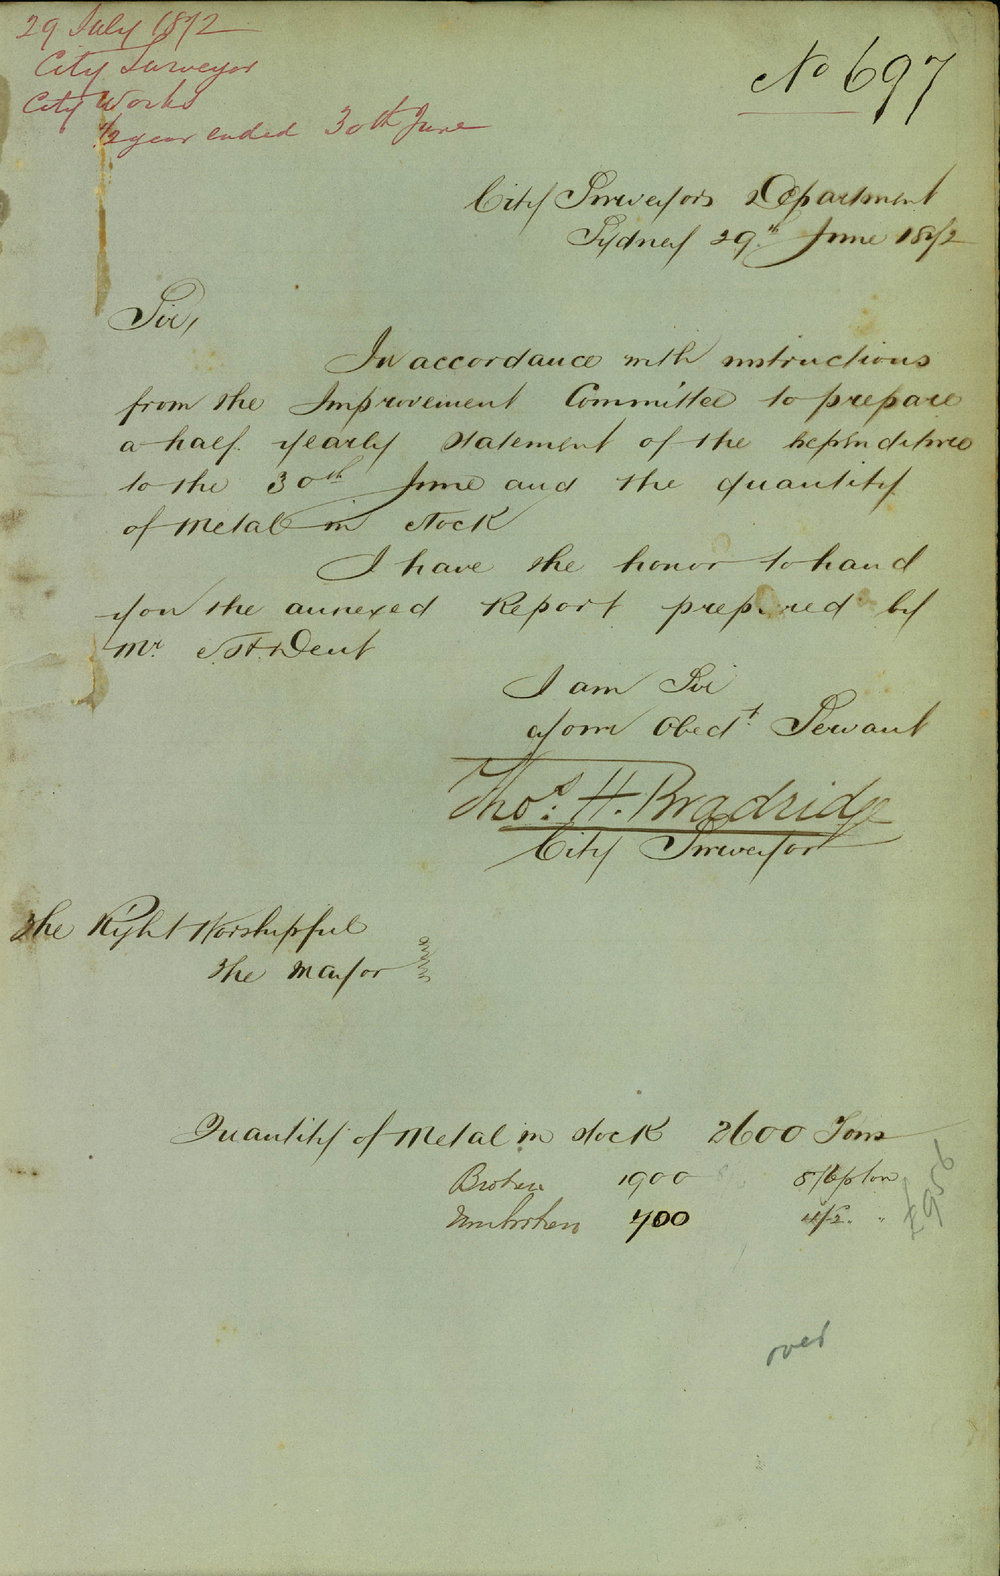 29 July 1872
City Surveyor
City Works
1/2 year ended 30th June
No 697
City Surveyors Department
Sydney 29th June 1872
Sir,
In accordance with instructions
from the Improvement Committee to prepare
a half yearly statement of the expenditure
to the 30th June and the quantity
of Metal in stock
I have the honor to hand
you the annexed Report prepared by
Mr Dent
I am Sir
Your Obedt Servant
Thos. H. Bradridge
City Surveyor
The Right Worshipful
The Mayor
Quantity of Metal in stock 2600 Tons
Broken 1900 8/6 p ton
Unbroken 700 "
£956
over